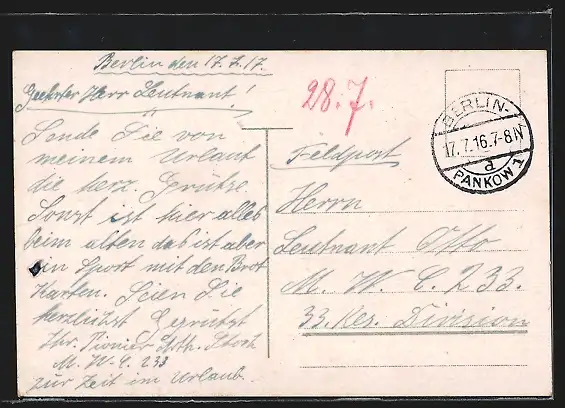 Berlin den 17.7.17.
Geehrter Herr Leutnant!
Sende Sie von
meinem Urlaub
die herz. Grütze.
Sonst ist hier alles
beim alten das ist aber
ein Sport mit den Brot
Karten. Seien Sie
herzlichst Gegrützt
Ihr. Pionier
M. W. C. 233
zur Zeit im Urlaub.
28.7.
BERLIN-
17.7.16.7-8N
a
PANKOW 1
Feldpost
Herrn
Leutnant Otto
M. W. C. 233.
33. Res. Division